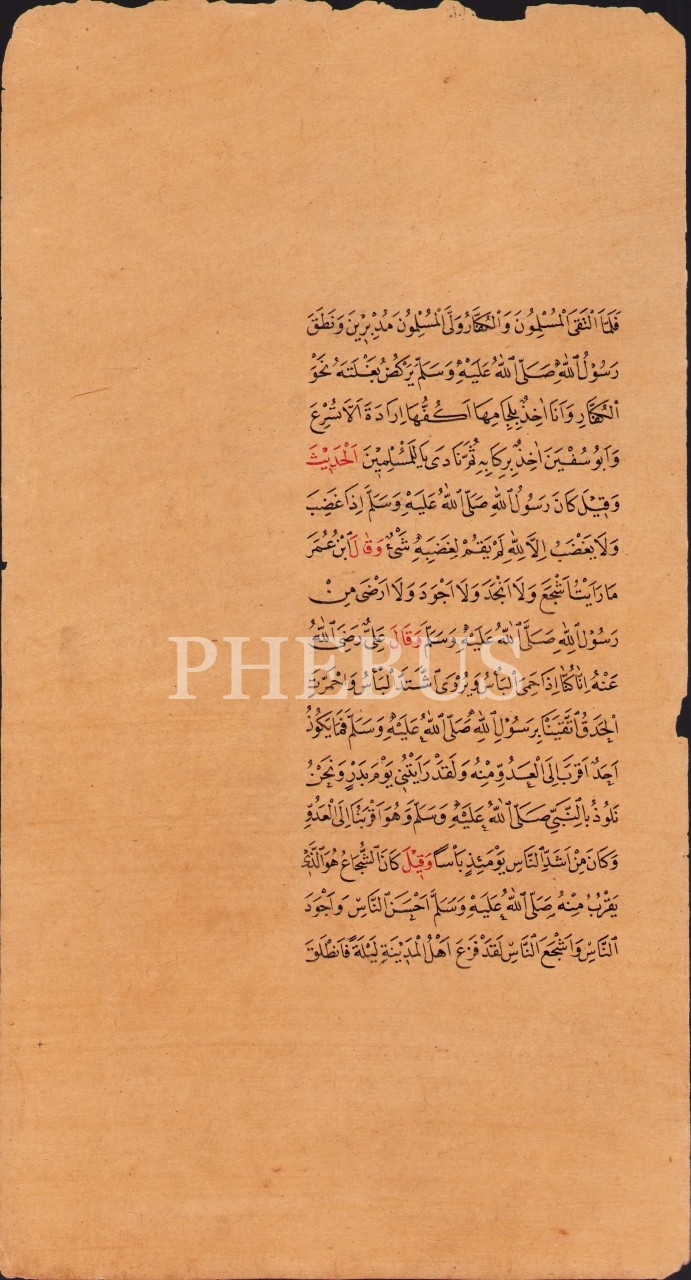 فَلَمَّا الْتَقَى الْمُسْلِمُونَ وَالْكُفَّارُ وَلَّى الْمُسْلِمُونَ مُدْبِرِينَ وَنَطَقَ
رَسُوْلُ اللّٰهِ صَلَّى اللّٰهُ عَلَيْهِ وَسَلَّمَ يَرْكُضُ بَغْلَتَهُ نَحْوَ
الْكُفَّارِ وَاَنَا اٰخِذٌ بِلِجَامِهَا اَكُفُّهَا اِرَادَةَ اَلَّا تُسْرِعَ
وَاَبُو سُفْيٰنَ اٰخِذٌ بِرِكَابِهِ ثُمَّ نَادَى يَا لَلْمُسْلِمِيْنَ اَلْحَدِيْثَ
وَقِيْلَ كَانَ رَسُوْلُ اللّٰهِ صَلَّى اللّٰهُ عَلَيْهِ وَسَلَّمَ اِذَا غَضِبَ
وَلَا يَغْضَبُ اِلَّا لِلّٰهِ لَمْ يَقُمْ لِغَضَبِهِ شَىْءٌ وَقَالَ ابْنُ عُمَرَ
مَا رَاَيْتُ اَشْجَعَ وَلَا اَنْجَدَ وَلَا اَجْوَدَ وَلَا اَرْضٰى مِنْ
رَسُوْلِ اللّٰهِ صَلَّى اللّٰهُ عَلَيْهِ وَسَلَّمَ وَقَالَ عَلِىٌّ رَضِىَ اللّٰهُ
PHEBUS
عَنْهُ اِنَّا كُنَّا اِذَا حَمِىَ الْبَأْسُ وَيُرْوٰى اشْتَدَّ الْبَأْسُ وَاحْمَرَّتِ
الْحَدَقُ اتَّقَيْنَا بِرَسُوْلِ اللّٰهِ صَلَّى اللّٰهُ عَلَيْهِ وَسَلَّمَ فَمَا يَكُوْنُ
اَحَدٌ اَقْرَبَ اِلَى الْعَدُوِّ مِنْهُ وَلَقَدْ رَاَيْتُنِى يَوْمَ بَدْرٍ وَنَحْنُ
نَلُوْذُ بِالنَّبِىِّ صَلَّى اللّٰهُ عَلَيْهِ وَسَلَّمَ وَهُوَ اَقْرَبُنَا اِلَى الْعَدُوِّ
وَكَانَ مِنْ اَشَدِّ النَّاسِ يَوْمَئِذٍ بَأْسًا وَقِيْلَ كَانَ الشُّجَاعُ هُوَ الَّذِى
يَقْرُبُ مِنْهُ صَلَّى اللّٰهُ عَلَيْهِ وَسَلَّمَ اَحْسَنَ النَّاسِ وَاَجْوَدَ
النَّاسِ وَاَشْجَعَ النَّاسِ لَقَدْ فَزِعَ اَهْلُ الْمَدِيْنَةِ لَيْلَةً فَانْطَلَقَ